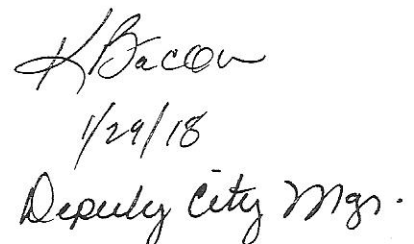 KBacon
1/29/18
Deputy City Mgr.